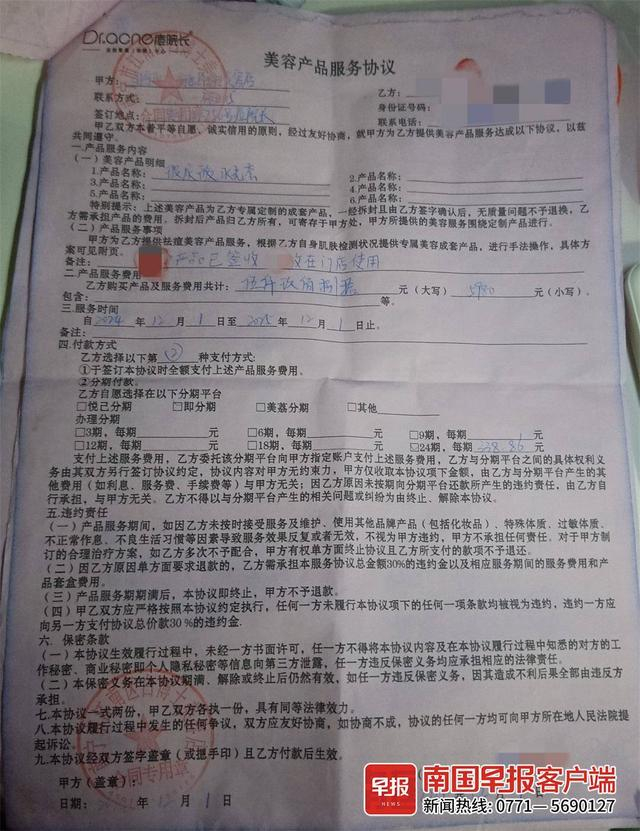 Dr.acne唐院长
美容产品服务协议
甲方：
乙方：
联系方式：
身份证号码：
签订地点：
联系电话：
甲乙双方本着平等自愿、诚实信用的原则，经过友好协商，就甲方为乙方提供美容产品服务达成以下协议，以兹
共同遵守。
一.产品服务内容
（一）美容产品明细
1.产品名称： 2.产品名称：
3.产品名称： 4.产品名称：
5.产品名称： 6.产品名称：
特别提示：上述美容产品为乙方专属定制的成套产品，一经拆封且由乙方签字确认后，无质量问题不予退换，乙
方需承担产品的费用。拆封后产品归乙方所有，可寄存于甲方处，甲方所提供的美容服务围绕定制产品进行。
（二）产品服务事项
甲方为乙方提供祛痘美容产品服务，根据乙方自身肌肤检测状况提供专属美容成套产品，进行手法操作，具体方
案可见附页。
备注： 产品已签收 在门店使用
二.产品服务费用
乙方购买产品及服务费用共计： 元（大写） 5980 元（小写）。
包含： 等。
三.服务时间
自2024年12月1日至2025年12月1日止。
备注：
四.付款方式
乙方选择以下第②种支付方式：
①于签订本协议时全额支付上述产品服务费用。
②分期付款。
乙方自愿选择在以下分期平台
□悦己分期 □即分期 □美荔分期 □其他
办理分期
□3期，每期 元 □6期，每期 元 □9期，每期 元
□12期，每期 元 □18期，每期 元 □24期，每期 元
支付上述服务费用，乙方委托该分期平台向甲方指定账户支付上述服务费用，乙方与分期平台之间的具体权利义
务由其双方另行签订协议约定，协议内容对甲方无约束力，甲方仅收取本协议项下金额，由乙方与分期平台产生的其
他费用（如利息、服务费、手续费等）与甲方无关；因乙方原因未按期向分期平台还款所产生的违约责任，由乙方自
行承担，与甲方无关。乙方不得以与分期平台产生的相关问题或纠纷为由终止、解除本协议。
五.违约责任
（一）产品服务期间，如因乙方未按时接受服务及维护、使用其他品牌产品（包括化妆品）、特殊体质、过敏体质、
不正常作息、不良生活习惯等因素导致服务效果反复或者无效，不视为甲方违约，甲方不承担任何责任。对于甲方制
订的合理治疗方案，如乙方多次不予配合，甲方有权单方面终止协议且乙方所支付的款项不予退还。
（二）因乙方原因单方面要求退款的，乙方需承担本服务协议总金额30%的违约金以及相应服务期间的服务费用和产
品套盒费用。
（三）产品服务期期满后，本协议即终止，甲方不予退款。
（四）甲乙双方应严格按照本协议约定执行，任何一方未履行本协议项下的任何一项条款均被视为违约，违约一方应
向另一方支付协议总价款30 %的违约金.
六. 保密条款
（一）本协议生效履行过程中，未经一方书面许可，任一方不得将本协议内容及在本协议履行过程中知悉的对方的工
作秘密、商业秘密即个人隐私秘密等信息向第三方泄露，任一方违反保密义务均应承担相应的法律责任。
（二）本保密义务在本协议期满、解除或终止后仍然有效，如任一方违反保密义务，因其造成不利后果全部由违反方
承担。
七.本协议一式两份，甲乙双方各执一份，具有同等法律效力。
八.本协议履行过程中发生的任何争议，双方应友好协商，如协商不成，协议的任何一方均可向甲方所在地人民法院提
起诉讼。
九.本协议经双方签字盖章（或把手印）且乙方付款后生效。
甲方（盖章）：
日期： 年12月1日
早报 南国早报客户端
新闻热线：0771—5690127